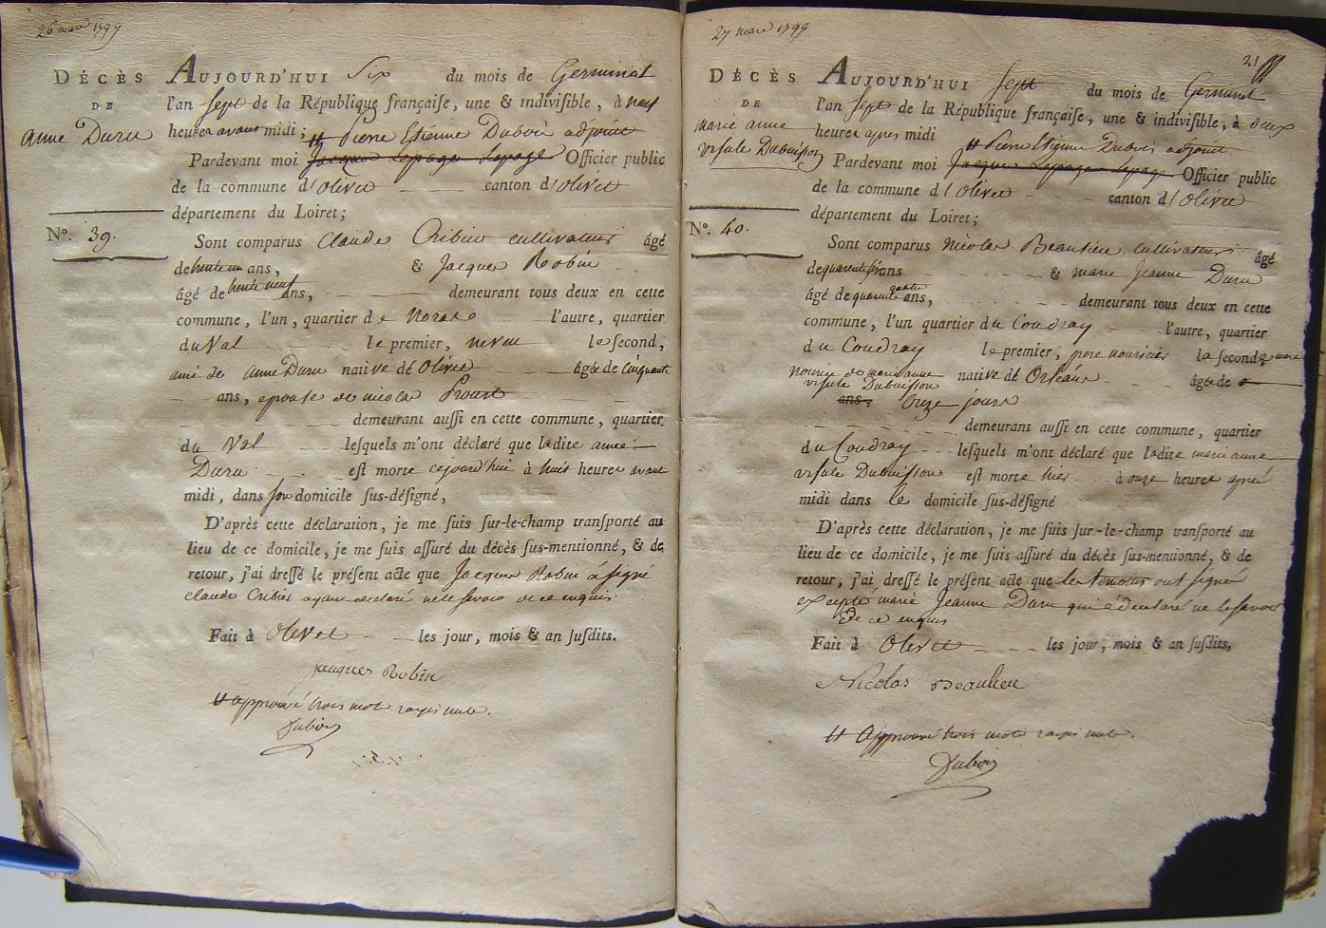 26 mars 1799
DÉCÈS
DE
anne Duru
N°. 39.
AUJOURD'HUI Six du mois de Germinal
l'an Sept de la République françaiſe, une & indiviſible, à neuf
heures avant midi; # Pierre Etienne Dubois adjoint
Pardevant moi Jacques Lepage Lepage Officier public
de la commune d'Olivet canton d'Olivet
département du Loiret;
SONT comparus Claude Cribier cultivateur âgé
de ans, & Jacques Robin
âgé de trente neuf ans, demeurant tous deux en cette
commune, l'un, quartier de l'autre, quartier
du Val le premier, neveu le second,
ami de anne Duru native de Olivet âgée de Cinquante
ans, epouse de nicolas Proust
demeurant auſſi en cette commune, quartier
du Val leſquels m'ont déclaré que ladite anne
Duru eſt morte cejourd'hui à huit heures avant
midi, dans ſon domicile ſus-déſigné,
D'après cette déclaration, je me ſuis ſur-le-champ tranſporté au
lieu de ce domicile, je me ſuis aſſuré du décès ſus-mentionné, & de
retour, j'ai dreſſé le préſent acte que Jacques Robin a ſigné
Claude Cribier ayant declaré ne le ſavoir de ce enquis.
Fait à Olivet les jour, mois & an ſuſdits.
jacques Robin
# approuvé trois mots rayés nuls.
Dubois
27 mars 1799
21
DÉCÈS
DE
marie anne
urſule Dubuiſſon
N°. 40.
AUJOURD'HUI Sept du mois de Germinal
l'an Sept de la République françaiſe, une & indiviſible, à deux
heures apres midi # Pierre Etienne Dubois adjoint
Pardevant moi Jacques Lepage Lepage Officier public
de la commune d'Olivet canton d'Olivet
département du Loiret;
SONT comparus Nicolas Beaulieu cultivateur âgé
de ans & marie jeanne Duru
âgé de quarante quatre ans, demeurant tous deux en cette
commune, l'un quartier du Coudray l'autre, quartier
du Coudray le premier, pere nouricier la seconde mere
nourice de marie anne
urſule Dubuiſſon native de Orléans âgée de
ans, onze jours
demeurant auſſi en cette commune, quartier
du Coudray leſquels m'ont déclaré que ladite marie anne
urſule Dubuiſſon eſt morte hier à onze heures après
midi dans le domicile ſus-déſigné
D'après cette déclaration, je me ſuis ſur-le-champ tranſporté au
lieu de ce domicile, je me ſuis aſſuré du décès ſus-mentionné, & de
retour, j'ai dreſſé le préſent acte que les temoins ont ſigné
excepté marie Jeanne Duru qui a declaré ne le ſavoir
de ce enquis
Fait à Olivet les jour, mois & an ſuſdits,
Nicolas Beaulieu
# Approuvé trois mots rayés nuls.
Dubois